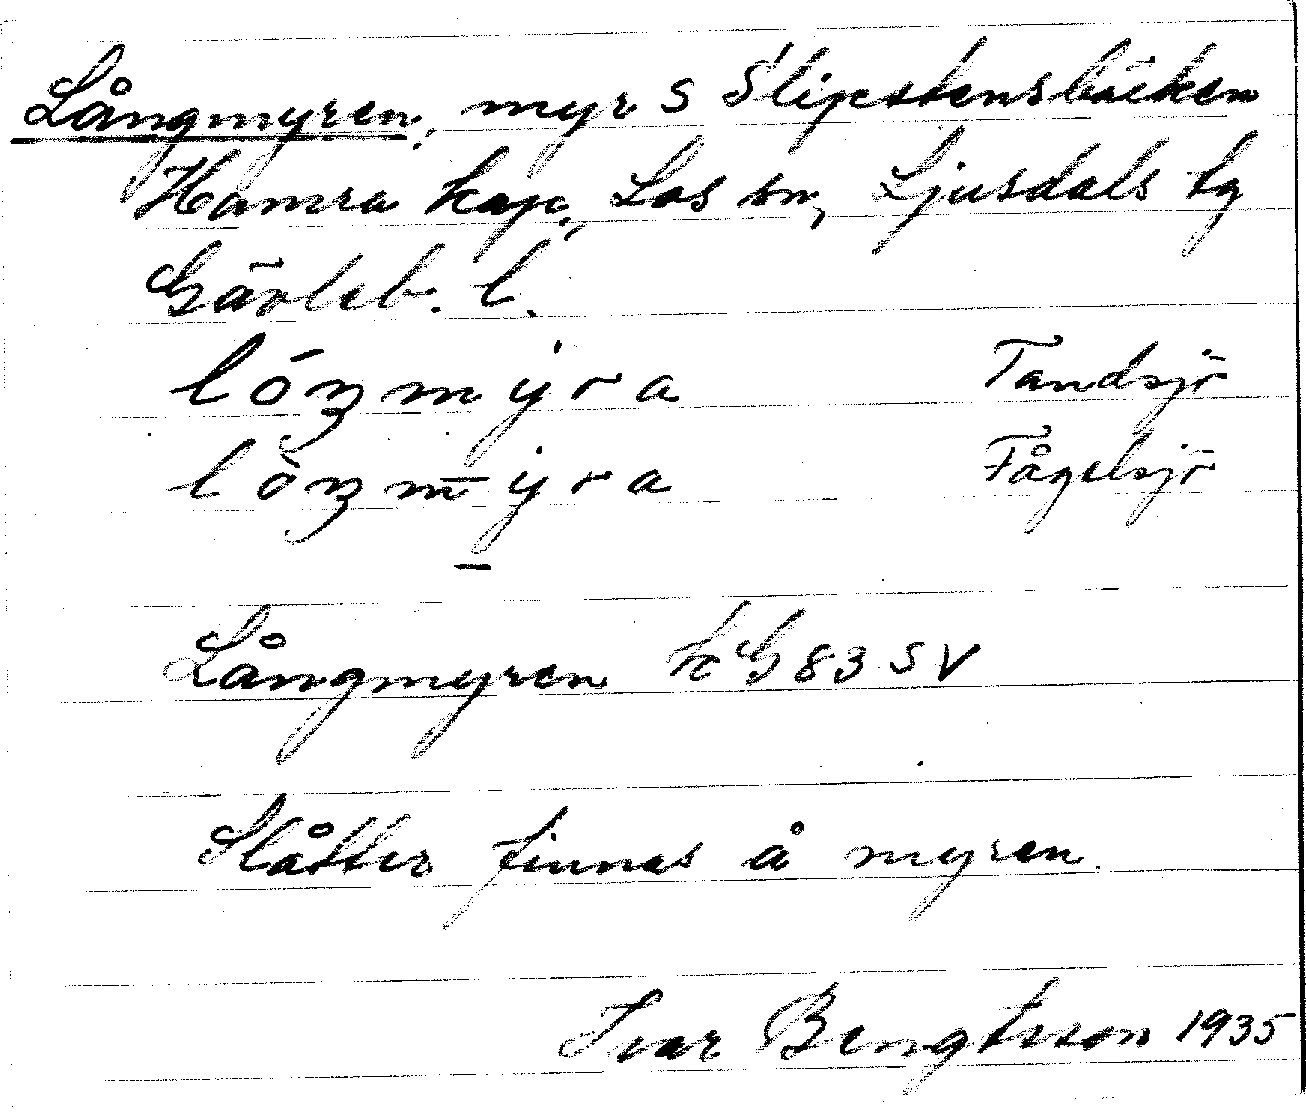 Långmyren, myr S Slipstensbäcken
Hamra kap, Los sn, Ljusdals tg
Gävleb. l.
lóŋmýra Tandsjö
lòŋmy̅ra Fågelsjö
Långmyren kG 83 SV
Slåtter finnes å myren.
Ivar Bengtsson 1935